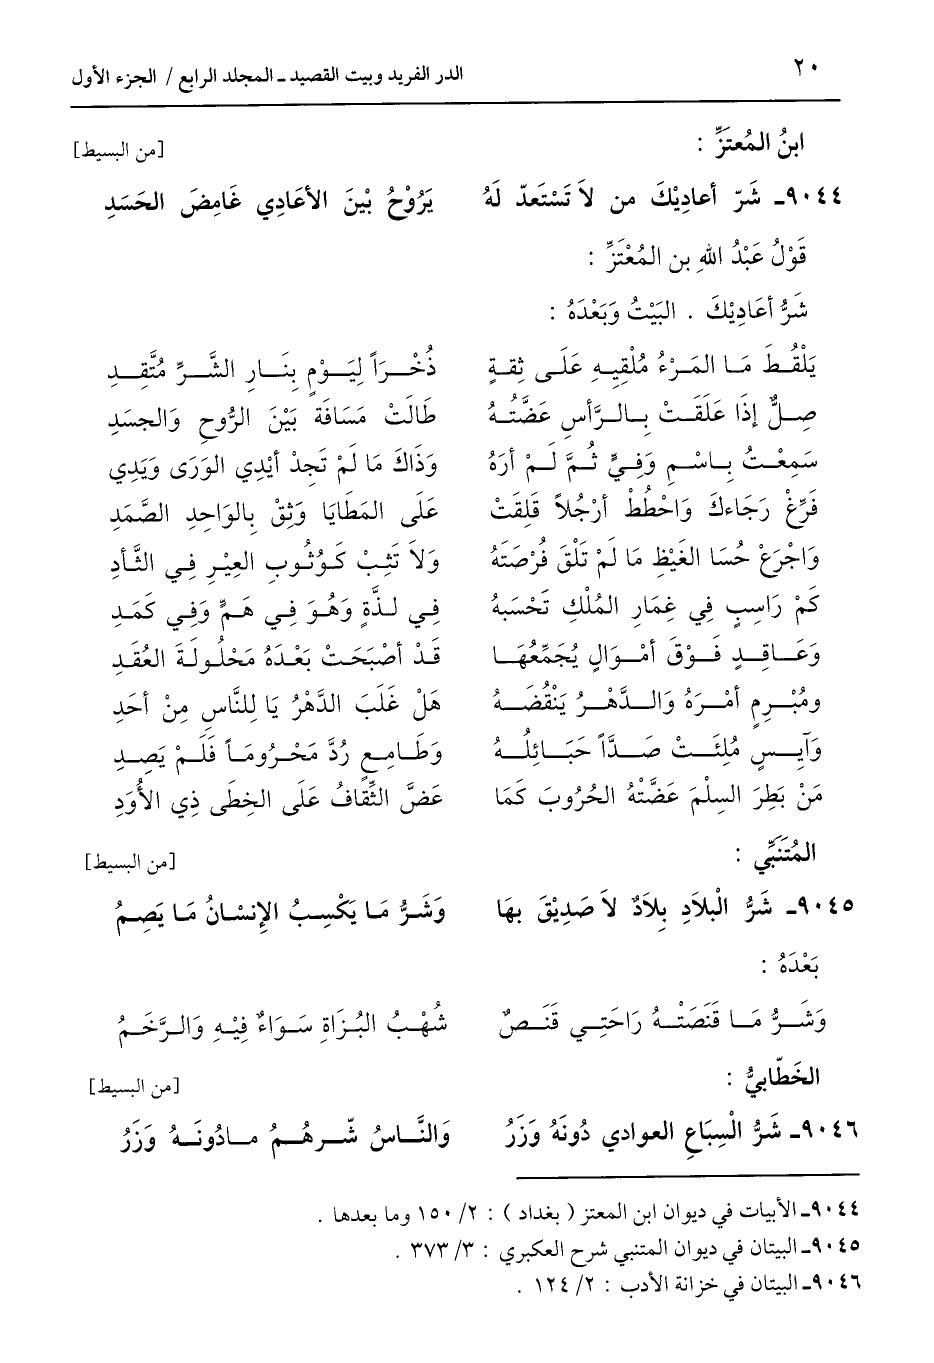 ٢٠ الدر الفريد وبيت القصيد ـ المجلد الرابع / الجزء الأول
ابنُ المُعتَزِّ : [من البسيط]
٩٠٤٤ـ شَرّ أعادِيْكَ من لاَ تَسْتَعدّ لَهُ يَرُوْحُ بْيْنَ الأعَادِي غَامِضَ الحَسَدِ
قَوْلُ عَبْدُ اللهِ بن المُعْتَزِّ :
شَرُّ أعَادِيْكَ . البَيْتُ وَبَعْدَهُ :
يَلْقُطَ مَا المَرْءُ مُلْقِيهِ عَلَى ثِقةٍ ذُخْرَاً لِيَوْمٍ بِنَارِ الشَّرِّ مُتَّقِدِ
صِلٌّ إذَا عَلَقَتْ بِالرَّأسِ عَضَّتُهُ طَالَتْ مَسَافَة بَيْنَ الرُّوحِ وَالجسَدِ
سَمِعْتُ بِاسْمِ وَفِيٍّ ثُمَّ لَمْ أرَهُ وَذَاكَ مَا لَمْ تَجدْ أيْدِي الوَرَى وَيَدِي
فَرِّغْ رَجَاءكَ وَاحْطُطْ أرْجُلاً قَلِقَتْ عَلَى المَطَايَا وَثِقْ بِالوَاحِدِ الصَّمَدِ
وَاجْرَعْ حُسَا الغَيْظِ مَا لَمْ تَلْقَ فُرْصَتَهُ وَلاَ تَثِبْ كَوُثُوبِ العِيْرِ فِي الثَّأدِ
كَمْ رَاسِبٍ فِي غِمَارِ المُلْكِ تَحْسَبهُ فِي لذَّةٍ وَهُوَ فِي هَمٍّ وَفِي كَمَدِ
وَعَاقِدٍ فَوْقَ أمْوَالٍ يُجَمِّعُهَا قَدْ أصْبَحَتْ بَعْدَهُ مَحْلُولَةَ العُقَدِ
ومُبْرِمٍ أمْرَهُ وَالدَّهْرُ يَنْقُضَهُ هَلْ غَلَبَ الدَّهْرُ يَا لِلنَّاسِ مِنْ أحَدِ
وَآيِسٍ مُلئَتْ صَدَّاً حَبَائلُهُ وَطَامِعٍ رُدَّ مَحْرُومَاً فَلَمْ يَصِدِ
مَنْ بَطِرَ السِلْمَ عَضَّتْهُ الحُرُوبَ كَمَا عَضَّ الثِّقَافُ عَلَى الخِطَى ذِي الأُوَدِ
المُتَنَبِّي : [من البسيط]
٩٠٤٥ـ شَرُّ الْبلاَدِ بِلاَدٌ لاَ صَدِيْقَ بِهَا وَشَرُّ مَا يَكْسِبُ الإِنْسَانُ مَا يَصِمُ
بَعْدَهُ :
وَشَرُّ مَا قَنَصَتْهُ رَاحَتِي قَنَصٌ شُهْبُ البُزَاةِ سَوَاءٌ فِيْهِ وَالرَّخَمُ
الخَطَّابيُّ : [من البسيط]
٩٠٤٦ـ شَرُّ الْسِبَاعِ العوادي دُونَهُ وَزَرُ وَالنَّاسُ شّرهُمُ مادُونَهُ وَزَرُ
٩٠٤٤ـ الأبيات في ديوان ابن المعتز ( بغداد ) : ٢/ ١٥٠ وما بعدها .
٩٠٤٥ـ البيتان في ديوان المتنبي شرح العكبري : ٣/ ٣٧٣ .
٩٠٤٦ـ البيتان في خزانة الأدب : ٢/ ١٢٤ .